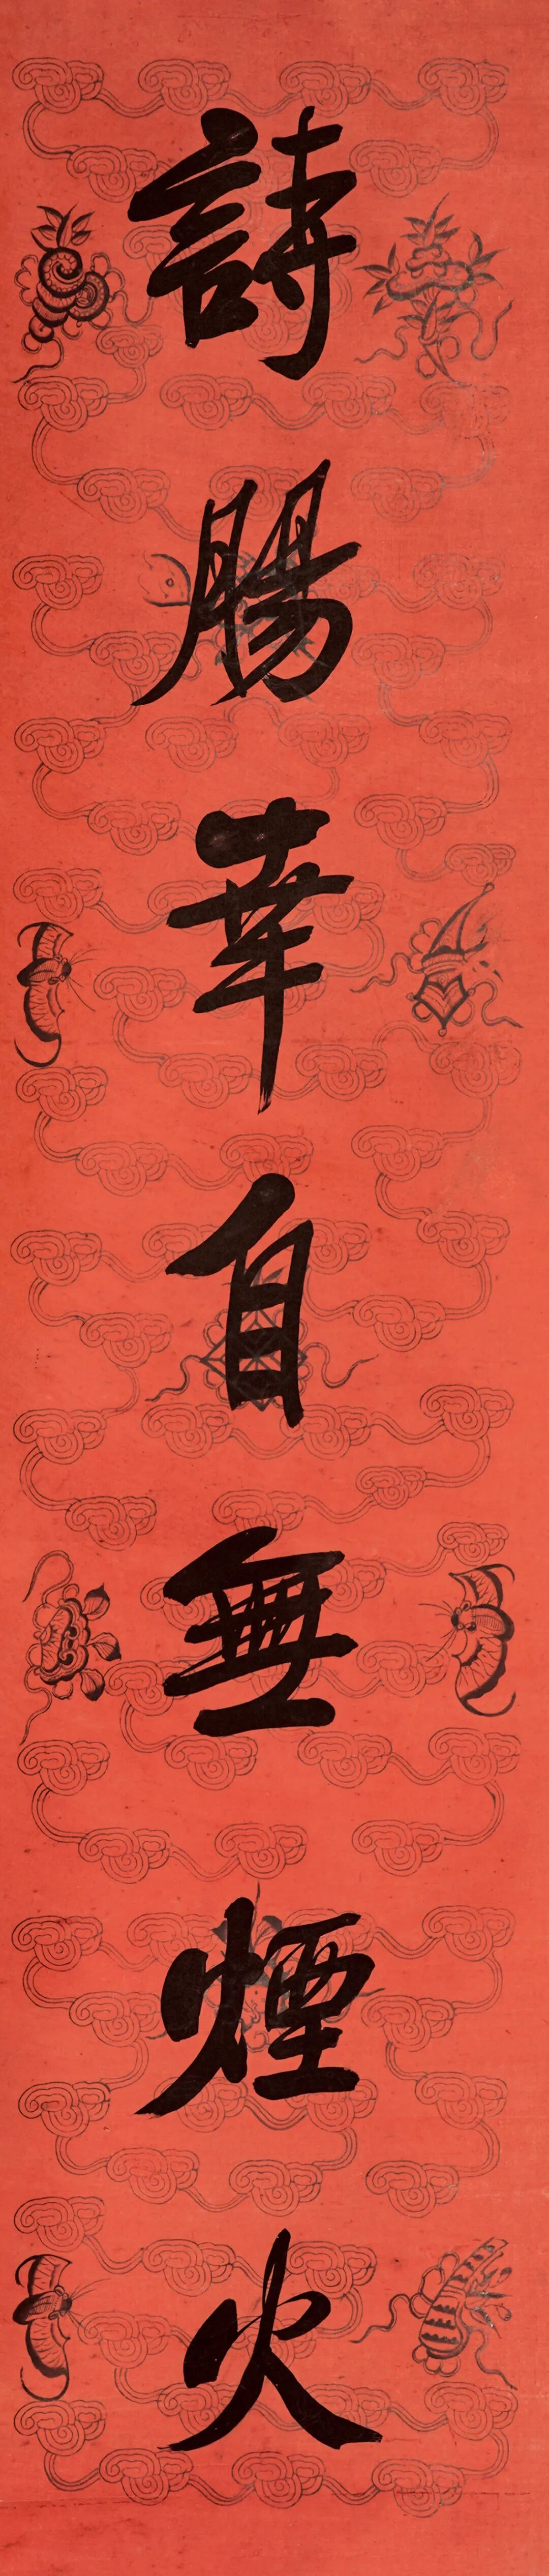 詩腸幸自無煙火